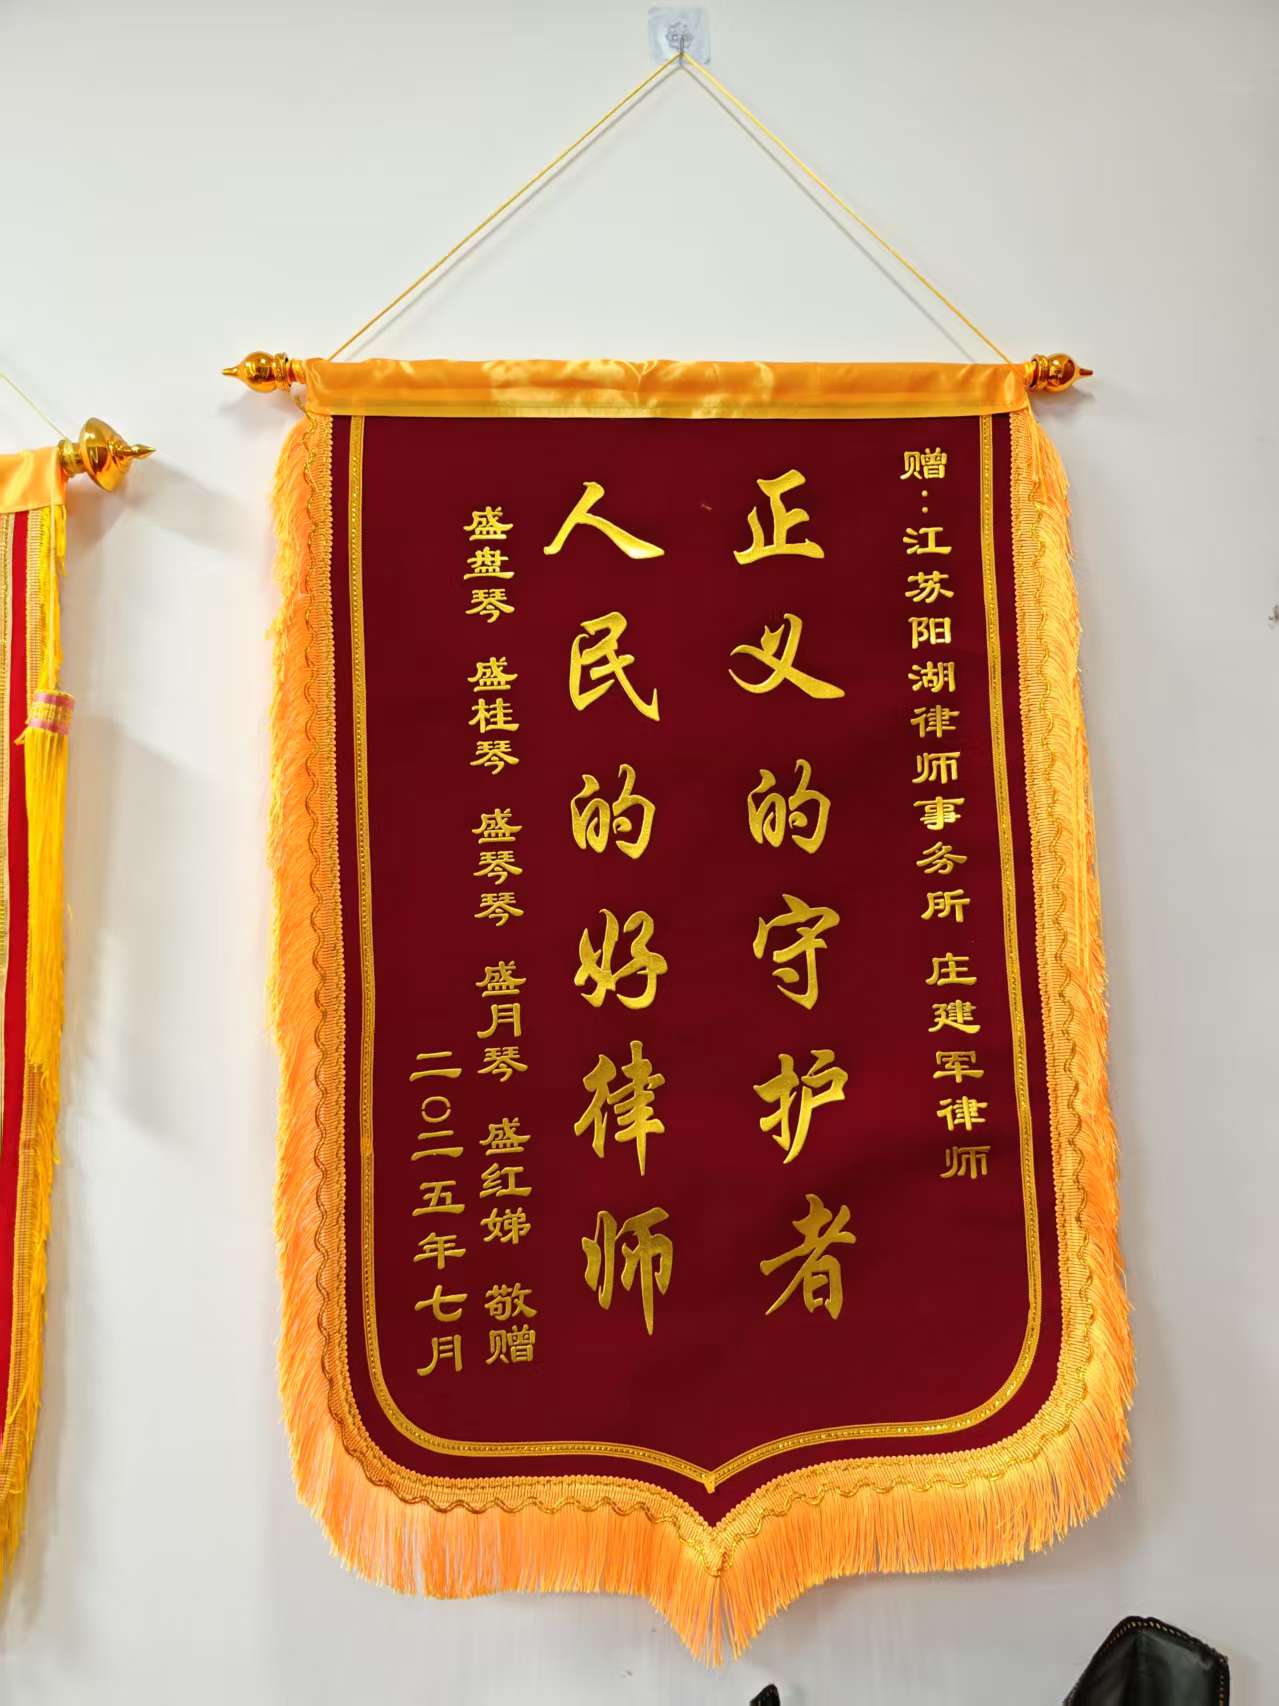 赠：江苏阳湖律师事务所 庄建军律师
正义的守护者
人民的好律师
盛盘琴 盛桂琴 盛琴琴 盛月琴 盛红娣 敬赠
二〇二五年七月